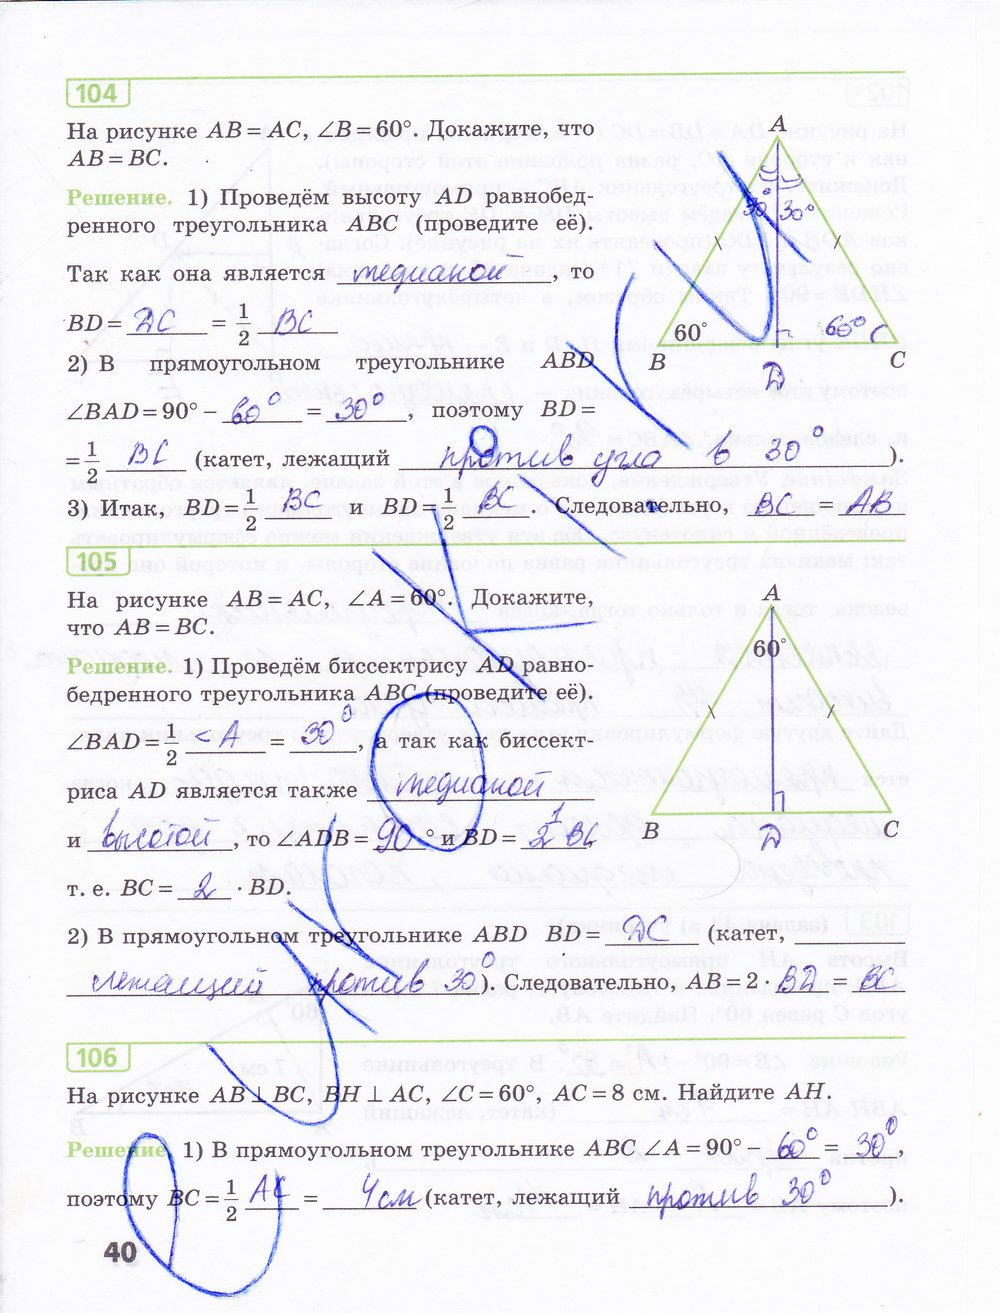 104
На рисунке AB = AC, ∠B = 60°. Докажите, что
AB = BC.
Решение. 1) Проведём высоту AD равнобед-
ренного треугольника ABC (проведите её).
Так как она является медианой, то
BD = DC = 1/2 BC
2) В прямоугольном треугольнике ABD
∠BAD = 90° − 60° = 30°, поэтому BD =
= 1/2 BC (катет, лежащий против угла в 30°).
3) Итак, BD = 1/2 BC и BD = 1/2 BC. Следовательно, BC = AB
A
30° 30°
60° 60°
B D C
105
На рисунке AB = AC, ∠A = 60°. Докажите,
что AB = BC.
Решение. 1) Проведём биссектрису AD равно-
бедренного треугольника ABC (проведите её).
∠BAD = 1/2 <A = 30°, а так как биссект-
риса AD является также медианой
и высотой, то ∠ADB = 90° и BD = 1/2 BC,
т. е. BC = 2 · BD.
2) В прямоугольном треугольнике ABD BD = DC (катет,
лежащий против 30°). Следовательно, AB = 2 · BD = BC
A
60°
B D C
106
На рисунке AB ⊥ BC, BH ⊥ AC, ∠C = 60°, AC = 8 см. Найдите AH.
Решение. 1) В прямоугольном треугольнике ABC ∠A = 90° − 60° = 30°,
поэтому BC = 1/2 AC = 4 см (катет, лежащий против 30°).
40